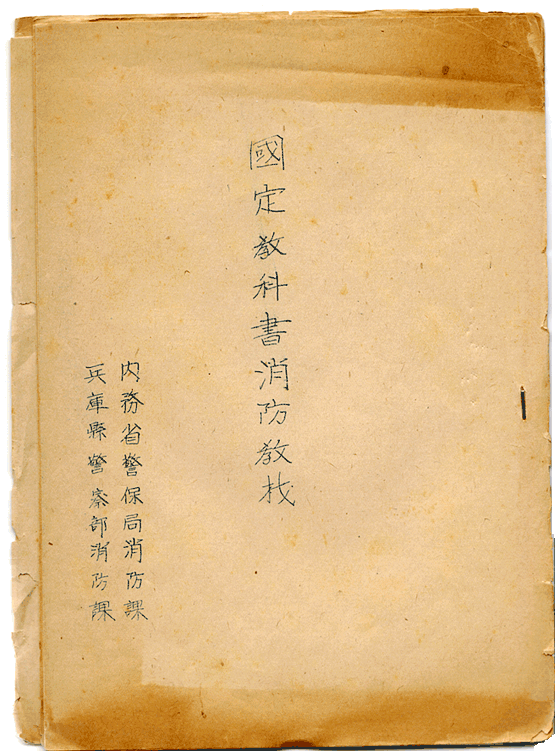 國定教科書消防教材
内務省警保局消防課
兵庫縣警察部消防課